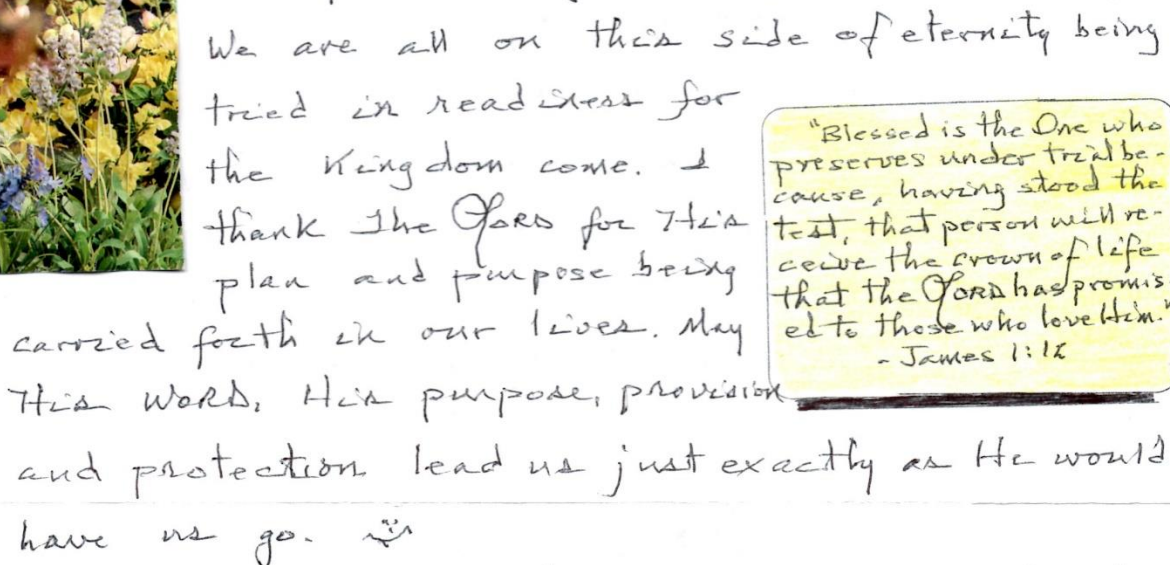 We are all on this side of eternity being
tried in readiness for
the Kingdom come. I
thank The LORD for His
plan and purpose being
carried forth in our lives. May
His WORD, His purpose, provision
and protection lead us just exactly as He would
have us go.
"Blessed is the One who
preserves under trial be-
cause, having stood the
test, that person will re-
ceive the crown of life
that the LORD has promis
ed to those who love Him."
- James 1:12